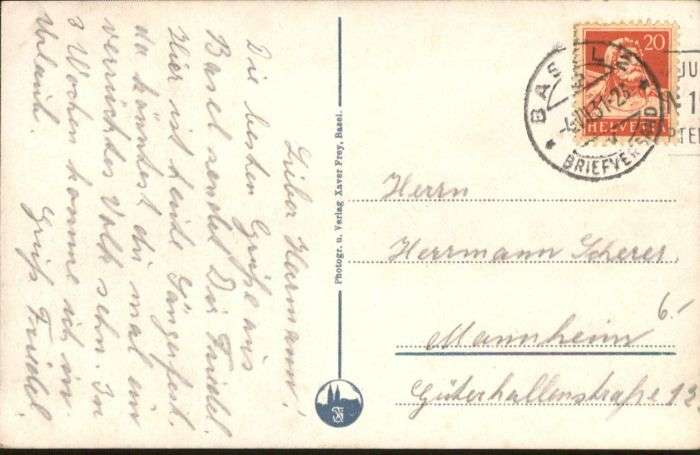 Lieber Hermann!
Die besten Grüße aus
Basel sendet Dir Friedel.
Hier ist heute Sängerfest.
da könntest du mal ein
verrücktes Volk sehn. In
3 Wochen komme ich in
Urlaub.
Gruß Friedel
Photogr. u. Verlag Xaver Frey, Basel.
20
HELVETIA
BASEL 2
BRIEFVERSAND
Herrn
Herrmann Scherer
Mannheim 6!
Güterhallenstraße 13